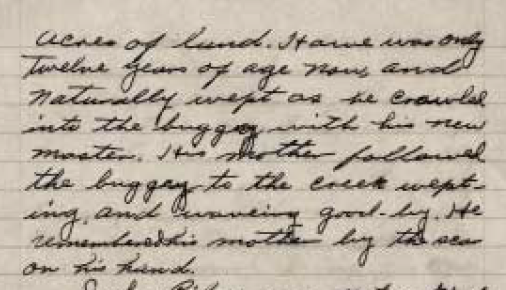 acres of land. Hawe was only
twelve years of age now, and
naturally wept as he crawled
into the buggey with his new
master. His mother followed
the buggey to the creek wept-
ing, and waveing good-by. He
remembered his mother by the scar
on his hand.